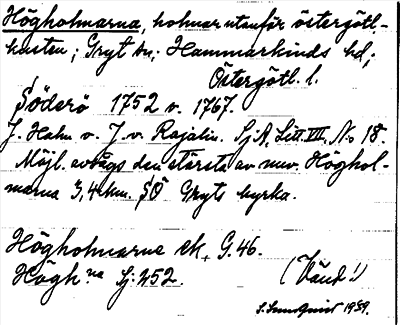 Högholmarna, holmar utanför östergötl.-
kusten; Gryt sn; Hammarkinds hd;
Östergötl. l.
Söderö 1752 v. 1767.
J. Hahn v. J. v. Rajalin. Sj A, Litt. VII, No 18.
Möjl. avsågs den största av nuv. Höghol-
marna 3,4 km. SÖ Gryts kyrka.
Högholmarne ek, G. 46.
Högh. na Sj: 252.
(Vänd!)
S. Sundquist 1939.